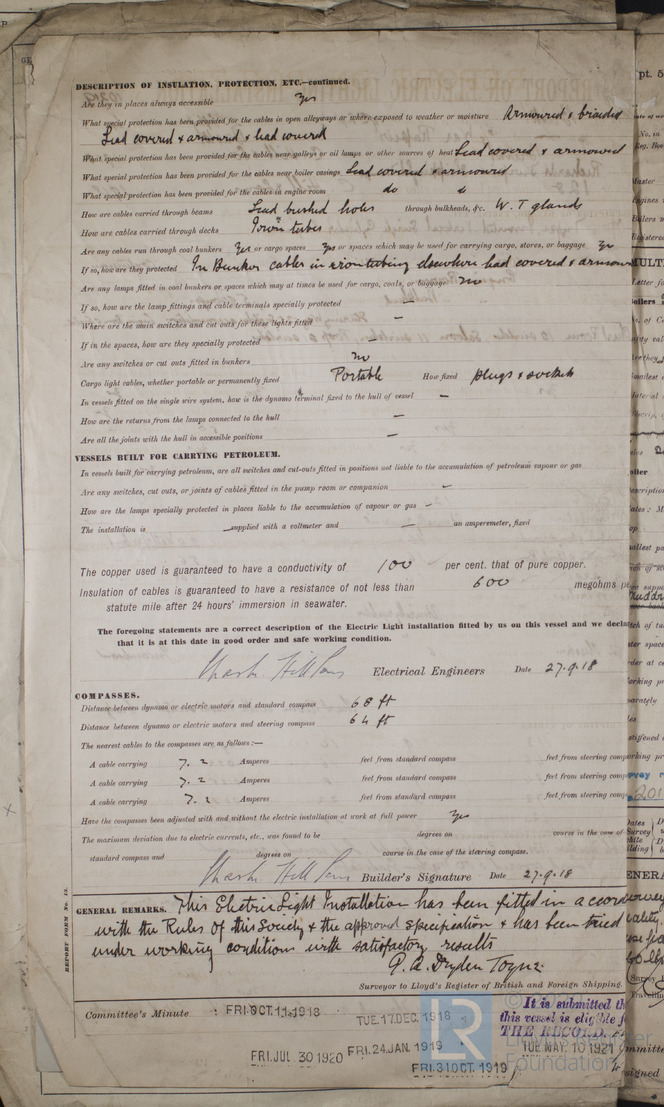 DESCRIPTION OF INSULATION, PROTECTION, ETC.—continued.
Are they in places always accessible Yes
What special protection has been provided for the cables in open alleyways or where exposed to weather or moisture Armoured & braided
Lead covered & armoured & lead covered
What special protection has been provided for the cables near galleys or oil lamps or other sources of heat Lead covered & armoured
What special protection has been provided for the cables near boiler casings Lead covered & armoured
What special protection has been provided for the cables in engine room do do
How are cables carried through beams Lead bushed holes through bulkheads, &c. W.T glands
How are cables carried through decks Iron tubes
Are any cables run through coal bunkers Yes or cargo spaces Yes or spaces which may be used for carrying cargo, stores, or baggage Yes
If so, how are they protected In Bunker cables in iron tubing elsewhere lead covered & armour
Are any lamps fitted in coal bunkers or spaces which may at times be used for cargo, coals, or baggage no
If so, how are the lamp fittings and cable terminals specially protected —
Where are the main switches and cut outs for these lights fitted —
If in the spaces, how are they specially protected —
Are any switches or cut outs fitted in bunkers no
Cargo light cables, whether portable or permanently fixed Portable How fixed plugs & sockets
In vessels fitted on the single wire system, how is the dynamo terminal fixed to the hull of vessel —
How are the returns from the lamps connected to the hull —
Are all the joints with the hull in accessible positions —
VESSELS BUILT FOR CARRYING PETROLEUM.
In vessels built for carrying petroleum, are all switches and cut-outs fitted in positions not liable to the accumulation of petroleum vapour or gas
Are any switches, cut outs, or joints of cables fitted in the pump room or companion —
How are the lamps specially protected in places liable to the accumulation of vapour or gas —
The installation is — supplied with a voltmeter and — an amperemeter, fixed
The copper used is guaranteed to have a conductivity of 100 per cent. that of pure copper.
Insulation of cables is guaranteed to have a resistance of not less than 600 megohms pe
statute mile after 24 hours' immersion in seawater.
The foregoing statements are a correct description of the Electric Light installation fitted by us on this vessel and we declar
that it is at this date in good order and safe working condition.
Charles Hill Sons Electrical Engineers Date 27.9.18
COMPASSES.
Distance between dynamo or electric motors and standard compass 68 ft
Distance between dynamo or electric motors and steering compass 64 ft
The nearest cables to the compasses are as follows:—
A cable carrying 7.2 Amperes feet from standard compass feet from steering comp
A cable carrying 7.2 Amperes feet from standard compass feet from steering comp
A cable carrying 7.2 Amperes feet from standard compass feet from steering comp
Have the compasses been adjusted with and without the electric installation at work at full power Yes
The maximum deviation due to electric currents, etc., was found to be degrees on course in the case of
standard compass and degrees on course in the case of the steering compass.
Charles Hill Sons Builder's Signature Date 27.9.18
GENERAL REMARKS. This Electric Light Installation has been fitted in accor
with the Rules of this Society & the approved specification & has been tried
under working conditions with satisfactory results
Surveyor to Lloyd's Register of British and Foreign Shipping.
REPORT FORM No. 13.
Committee's Minute FRI. OCT. 11. 1918 TUE. 17. DEC. 1918
It is submitted th
this vessel is eligible f
THE RECORD.
FRI. JUL 30 1920 FRI. 24. JAN. 1919 TUE. MAY. 10 1921
FRI. 31 OCT. 1919
LR
Foundation